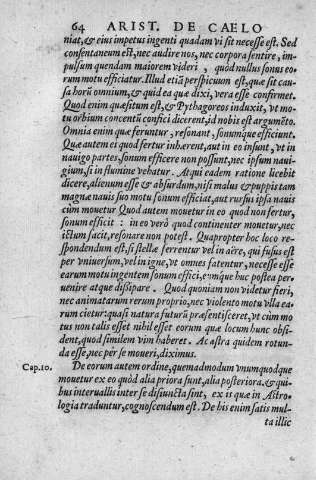 64 ARIST. DE CAELO
niat, & eius impetus ingenti quadam vi sit necesse est. Sed
consentaneum est, nec audire nos, nec corpora sentire, im-
pulsum quendam maiorem videri, quòd nullus sonus eo-
rum motu efficiatur. Illud etiā perspicuum est, quæ sit cau-
sa horū omnium, & quid ea quæ dixi, vera esse confirmet.
Quod enim quæsitum est, & Pythagoreos induxit, vt mo-
tu orbium concentū confici dicerent, id nobis est argumēto.
Omnia enim quæ feruntur, resonant, sonumque efficiunt.
Quæ autem ei quod fertur inhærent, aut in eo insunt, vt in
nauigo partes, sonum efficere non possunt, nec ipsum naui-
gium, si in flumine vehatur. Atqui eadem ratione licebit
dicere, alienum esse & absurdum, nisi malus & puppis tam
magnæ nauis suo motu sonum efficiat, aut rursus ipsa nauis
cùm mouetur. Quod autem mouetur in eo quod non fertur,
sonum efficit: in eo verò quod continenter mouetur, nec
ictum facit, resonare non potest. Quapropter hoc loco re-
spondendum est, si stellæ ferrentur vel in aëre, qui fusus est
per vniuersum, vel in igne, vt omnes fatentur, necesse esse
earum motu ingentem sonum effici, eumque huc postea per-
uenire atque dissipare. Quod quoniam non videtur fieri,
nec animatarum rerum proprio, nec violento motu vlla ea-
rum cietur: quasi natura futurū præsentisceret, vt cùm mo-
tus non talis esset nihil esset eorum quæ locum hunc obsi-
dent, quod similem vim haberet. Ac astra quidem rotun-
da esse, nec per se moueri, diximus.
Cap. 10. De eorum autem ordine, quemadmodum vnumquodque
mouetur ex eo quòd alia priora sunt, alia posteriora, & qui-
bus interuallis inter se disiuncta sint, ex iis quæ in Astro-
logia traduntur, cognoscendum est. De his enim satis mul-
ta illic